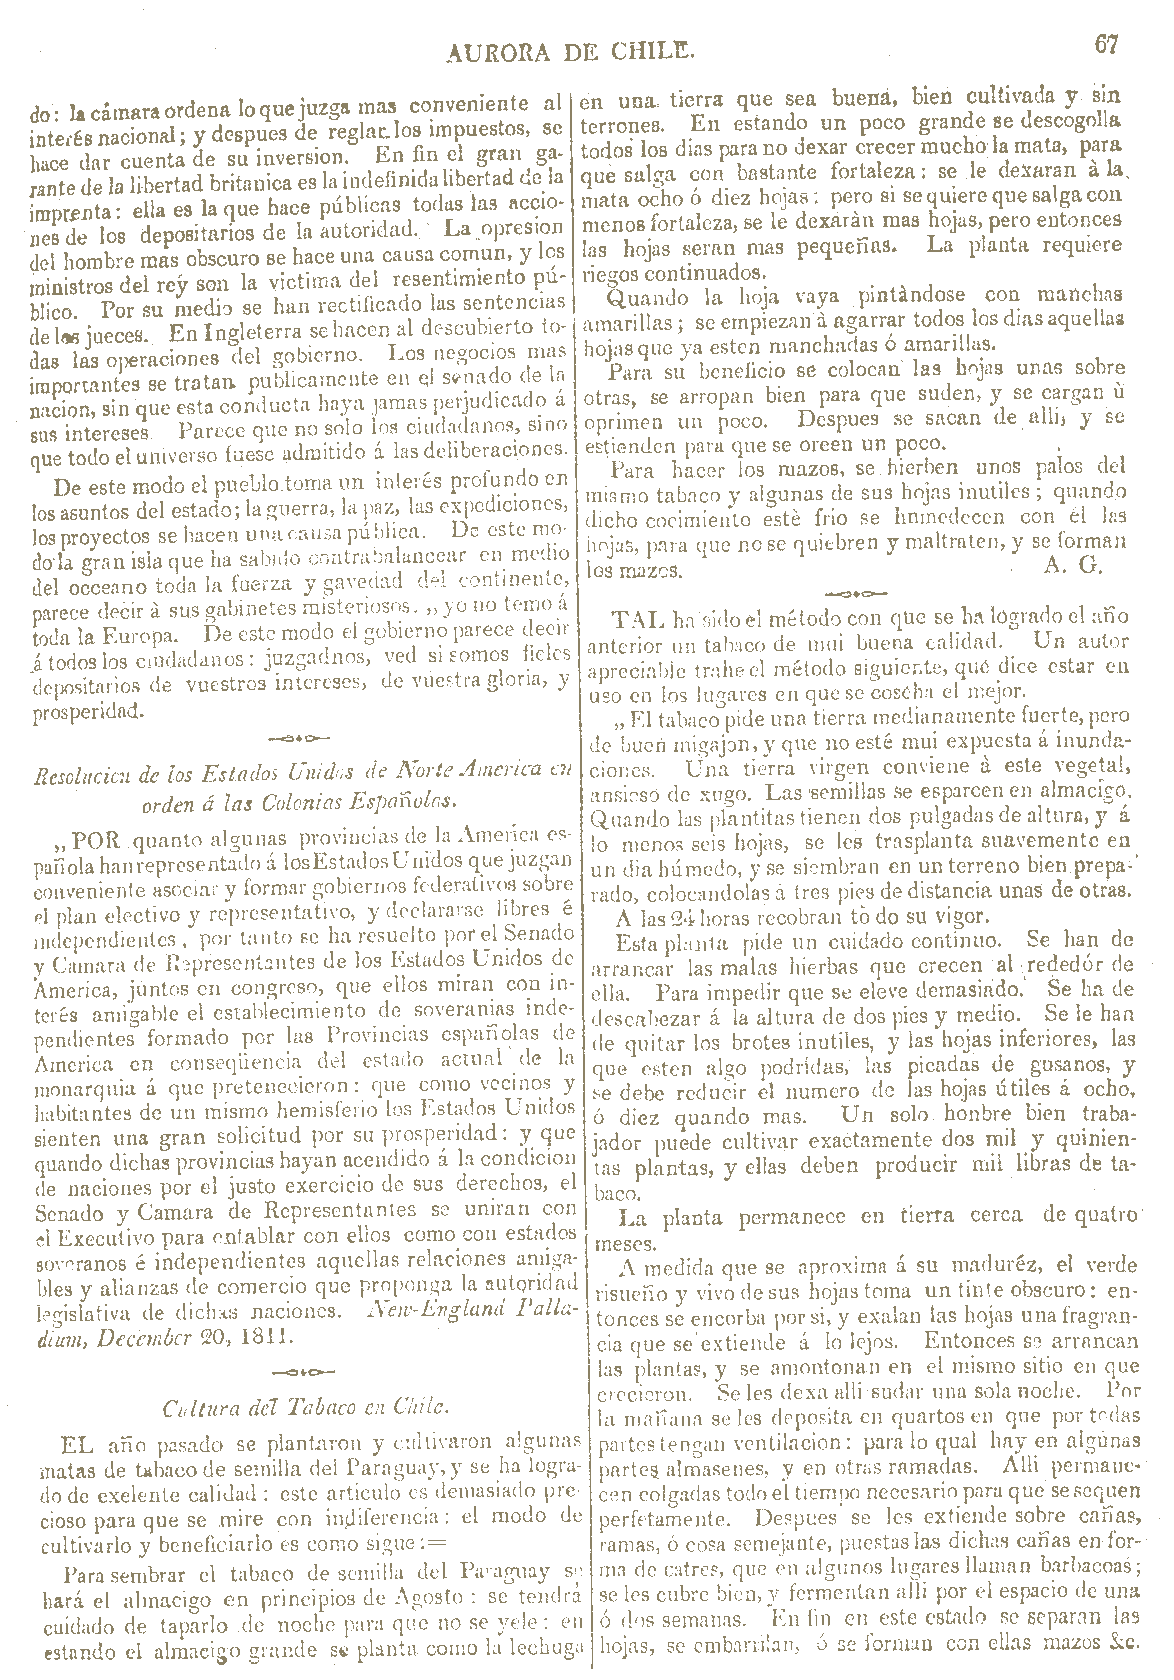 AURORA DE CHILE.
67
do: la cámara ordena lo que juzga mas conveniente al
interés nacional; y despues de reglar los impuestos, se
hace dar cuenta de su inversion. En fin el gran ga-
rante de la libertad britanica es la indefinida libertad de la
imprenta: ella es la que hace públicas todas las accio-
nes de los depositarios de la autoridad. La opresion
del hombre mas obscuro se hace una causa comun, y los
ministros del rey son la victima del resentimiento pú-
blico. Por su medio se han rectificado las sentencias
de los jueces. En Ingleterra se hacen al descubierto to-
das las operaciones del gobierno. Los negocios mas
importantes se tratan publicamente en el senado de la
nacion, sin que esta conducta haya jamas perjudicado á
sus intereses. Parece que no solo los ciudadanos, sino
que todo el universo fuese admitido á las deliberaciones.
De este modo el pueblo toma un interés profundo en
los asuntos del estado; la guerra, la paz, las expediciones,
los proyectos se hacen una causa pública. De este mo-
do la gran isla que ha sabido contrabalancear en medio
del occeano toda la fuerza y gavedad del continente,
parece decir à sus gabinetes misteriosos. ,, yo no temo á
toda la Europa. De este modo el gobierno parece decir
á todos los ciudadanos: juzgadnos, ved si somos fieles
depositarios de vuestros intereses, de vuestra gloria, y
prosperidad.
Resolucion de los Estados Unidos de Norte America en
orden á las Colonias Españolas.
,, POR quanto algunas provincias de la America es-
pañola han representado á los Estados Unidos que juzgan
conveniente asociar y formar gobiernos federativos sobre
el plan electivo y representativo, y declararse libres é
independientes, por tanto se ha resuelto por el Senado
y Camara de Representantes de los Estados Unidos de
America, júntos en congreso, que ellos miran con in-
terés amigable el establecimiento de soveranias inde-
pendientes formado por las Provincias españolas de
America en conseqüencia del estado actual de la
monarquia á que pretenecieron: que como vecinos y
habitantes de un mismo hemisferio los Estados Unidos
sienten una gran solicitud por su prosperidad: y que
quando dichas provincias hayan acendido á la condicion
de naciones por el justo exercicio de sus derechos, el
Senado y Camara de Representantes se uniran con
el Executivo para entablar con ellos como con estados
soveranos é independientes aquellas relaciones amiga-
bles y alianzas de comercio que proponga la autoridad
legislativa de dichas naciones. New-England Palla-
dium, December 20, 1811.
Cultura del Tabaco en Chile.
EL año pasado se plantaron y cultivaron algunas
matas de tabaco de semilla del Paraguay, y se ha logra-
do de exelente calidad: este articulo es demasiado pre-
cioso para que se mire con indiferencia: el modo de
cultivarlo y beneficiarlo es como sigue:=
Para sembrar el tabaco de semilla del Paraguay se
hará el almacigo en principios de Agosto: se tendrá
cuidado de taparlo de noche para que no se yele: en
estando el almacigo grande se planta como la lechuga
en una tierra que sea buena, bien cultivada y sin
terrones. En estando un poco grande se descogolla
todos los dias para no dexar crecer mucho la mata, para
que salga con bastante fortaleza: se le dexaran à la
mata ocho ó diez hojas: pero si se quiere que salga con
menos fortaleza, se le dexaràn mas hojas, pero entonces
las hojas seran mas pequeñas. La planta requiere
riegos continuados.
Quando la hoja vaya pintàndose con manchas
amarillas; se empiezan à agarrar todos los dias aquellas
hojas que ya esten manchadas ó amarillas.
Para su beneficio se colocan las hojas unas sobre
otras, se arropan bien para que suden, y se cargan ù
oprimen un poco. Despues se sacan de alli, y se
estienden para que se oreen un poco.
Para hacer los mazos, se hierben unos palos del
mismo tabaco y algunas de sus hojas inutiles; quando
dicho cocimiento estè frio se humedecen con él las
hojas, para que no se quiebren y maltraten, y se forman
los mazos. A. G.
TAL ha sido el método con que se ha logrado el año
anterior un tabaco de mui buena calidad. Un autor
apreciable trahe el método siguiente, que dice estar en
uso en los lugares en que se coscha el mejor.
,, El tabaco pide una tierra medianamente fuerte, pero
de buen migajon, y que no esté mui expuesta á inunda-
ciones. Una tierra virgen conviene à este vegetal,
ansioso de xugo. Las semillas se esparcen en almacigo.
Quando las plantitas tienen dos pulgadas de altura, y á
lo menos seis hojas, se les trasplanta suavemente en
un dia húmedo, y se siembran en un terreno bien prepa-
rado, colocandolas à tres pies de distancia unas de otras.
A las 24 horas recobran todo su vigor.
Esta planta pide un cuidado continuo. Se han de
arrancar las malas hierbas que crecen al rededór de
ella. Para impedir que se eleve demasiado. Se ha de
descabezar á la altura de dos pies y medio. Se le han
de quitar los brotes inutiles, y las hojas inferiores, las
que esten algo podridas, las picadas de gusanos, y
se debe reducir el numero de las hojas útiles á ocho,
ó diez quando mas. Un solo honbre bien traba-
jador puede cultivar exactamente dos mil y quinien-
tas plantas, y ellas deben producir mil libras de ta-
baco.
La planta permanece en tierra cerca de quatro
meses.
A medida que se aproxima á su maduréz, el verde
risueño y vivo de sus hojas toma un tinte obscuro: en-
tonces se encorba por si, y exalan las hojas una fragran-
cia que se extiende á lo lejos. Entonces se arrancan
las plantas, y se amontonan en el mismo sitio en que
crecieron. Se les dexa alli sudar una sola noche. Por
la mañana se les deposita en quartos en que por todas
partes tengan ventilacion: para lo qual hay en algunas
partes almasenes, y en otras ramadas. Alli permane-
cen colgadas todo el tiempo necesario para que se sequen
perfetamente. Despues se les extiende sobre cañas,
ramas, ó cosa semejante, puestas las dichas cañas en for-
ma de catres, que en algunos lugares llaman barbacoas;
se les cubre bien, y fermentan alli por el espacio de una
ó dos semanas. En fin en este estado se separan las
hojas, se embarrilan, ó se forman con ellas mazos &c.